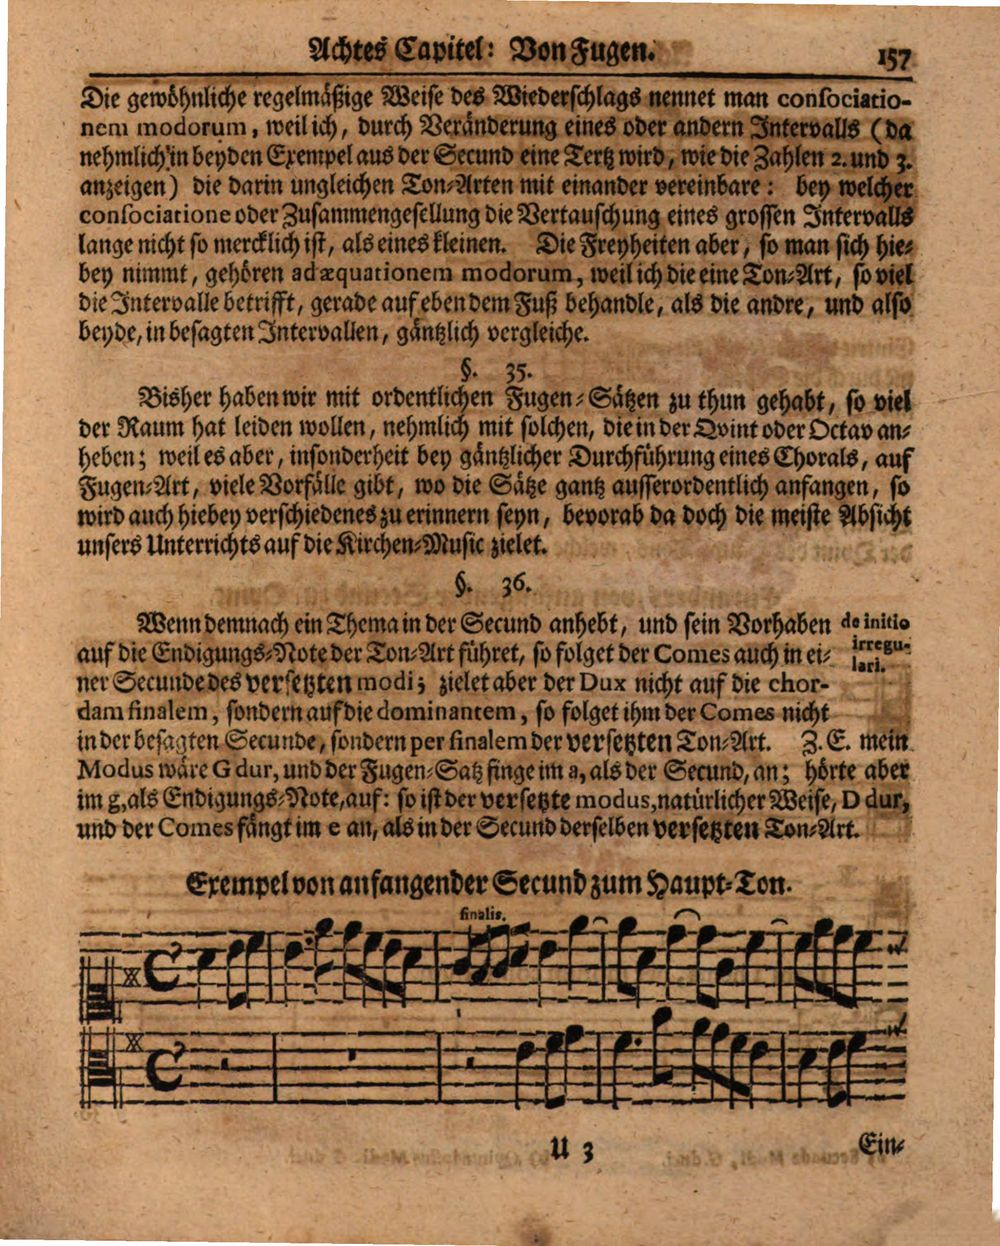 Achtes Capitel: Von Fugen. 157
Die gewöhnliche regelmäßige Weise des Wiederschlags nennet man consociatio-
nem modorum, weil ich, durch Veränderung eines oder andern Intervalls (da
nehmlich in beyden Exempel aus der Secund eine Tertz wird, wie die Zahlen 2. und 3.
anzeigen) die darin ungleichen Ton-Arten mit einander vereinbare: bey welcher
consociatione oder Zusammengesellung die Vertauschung eines grossen Intervalls
lange nicht so mercklich ist, als eines kleinen. Die Freyheiten aber, so man sich hie-
bey nimmt, gehören ad æquationem modorum, weil ich die eine Ton-Art, so viel
die Intervalle betrifft, gerade auf eben dem Fuß behandle, als die andre, und also
beyde, in besagten Intervallen, gäntzlich vergleiche.
§. 35.
Bisher haben wir mit ordentlichen Fugen-Sätzen zu thun gehabt, so viel
der Raum hat leiden wollen, nehmlich mit solchen, die in der Qvint oder Octav an-
heben; weil es aber, insonderheit bey gäntzlicher Durchführung eines Chorals, auf
Fugen-Art, viele Vorfälle gibt, wo die Sätze gantz ausserordentlich anfangen, so
wird auch hiebey verschiedenes zu erinnern seyn, bevorab da doch die meiste Absicht
unsers Unterrichts auf die Kirchen-Music zielet.
§. 36.
Wenn demnach ein Thema in der Secund anhebt, und sein Vorhaben
auf die Endigungs-Note der Ton-Art führet, so folget der Comes auch in ei-
ner Secunde des versetzten modi; zielet aber der Dux nicht auf die chor-
dam finalem, sondern auf die dominantem, so folget ihm der Comes nicht
in der besagten Secunde, sondern per finalem der versetzten Ton-Art. Z. E. mein
Modus wäre G dur, und der Fugen-Satz finge im a, als der Secund, an; hörte aber
im g, als Endigungs-Note, auf: so ist der versetzte modus, natürlicher Weise, D dur,
und der Comes fängt im e an, als in der Secund derselben versetzten Ton-Art.
de initio
irregu-
lari.
Exempel von anfangender Secund zum Haupt-Ton.
finalis.
U 3
Ein-